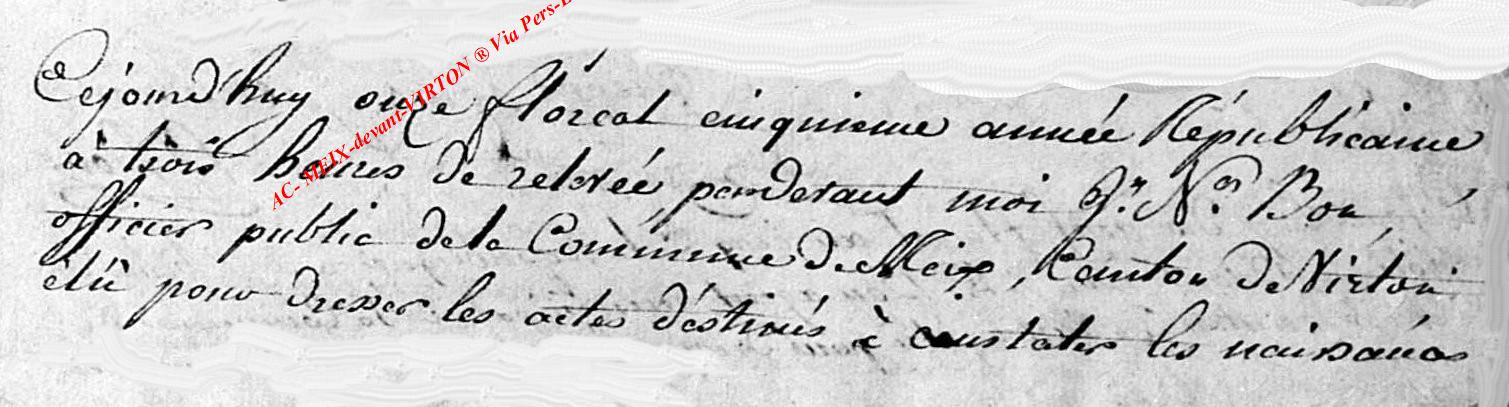 Cejourd'huy onze floréal cinquieme année Républicaine
à trois heures de relevée, pardevant moi Jn. Nas. Bon,
officier public de la Commune de Meix, Canton de Virton
élû pour dresser les actes déstinés à constater les naissances
AC- MEIX-devant-VIRTON ® Via Pers-